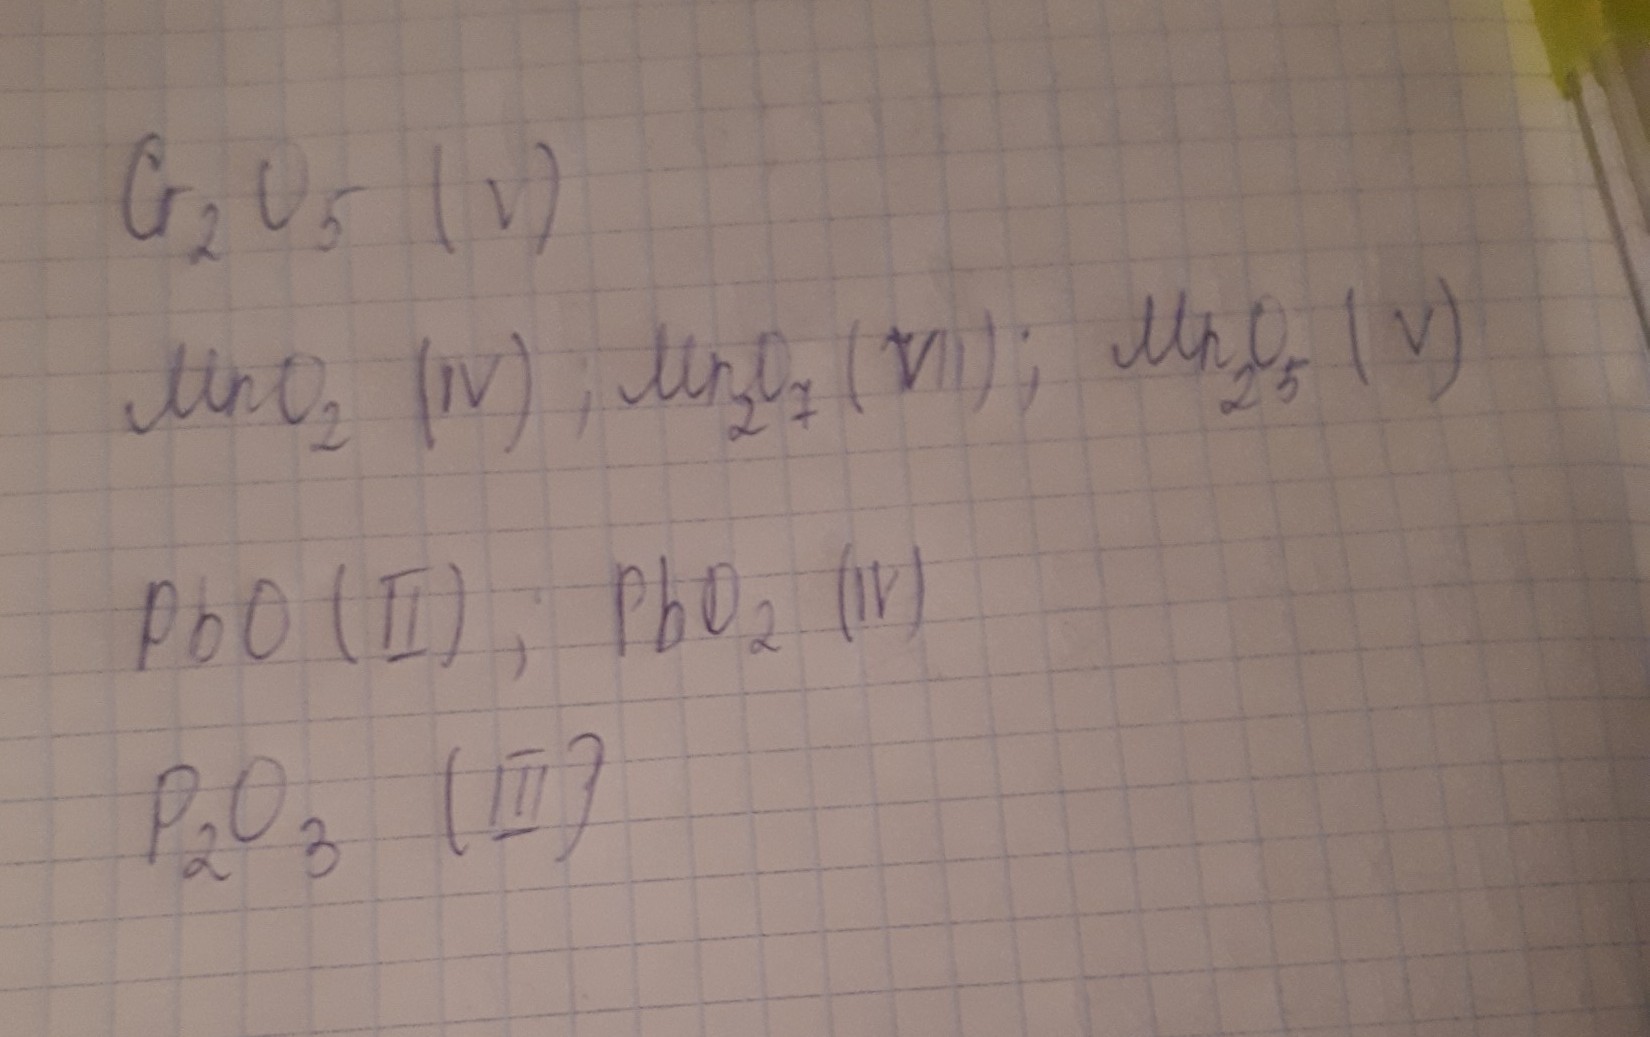 Cr₂O₅ (V)
MnO₂ (IV) ; Mn₂O₇ (VII) ; Mn₂O₅ (V)
PbO (II) ; PbO₂ (IV)
P₂O₃ (III)